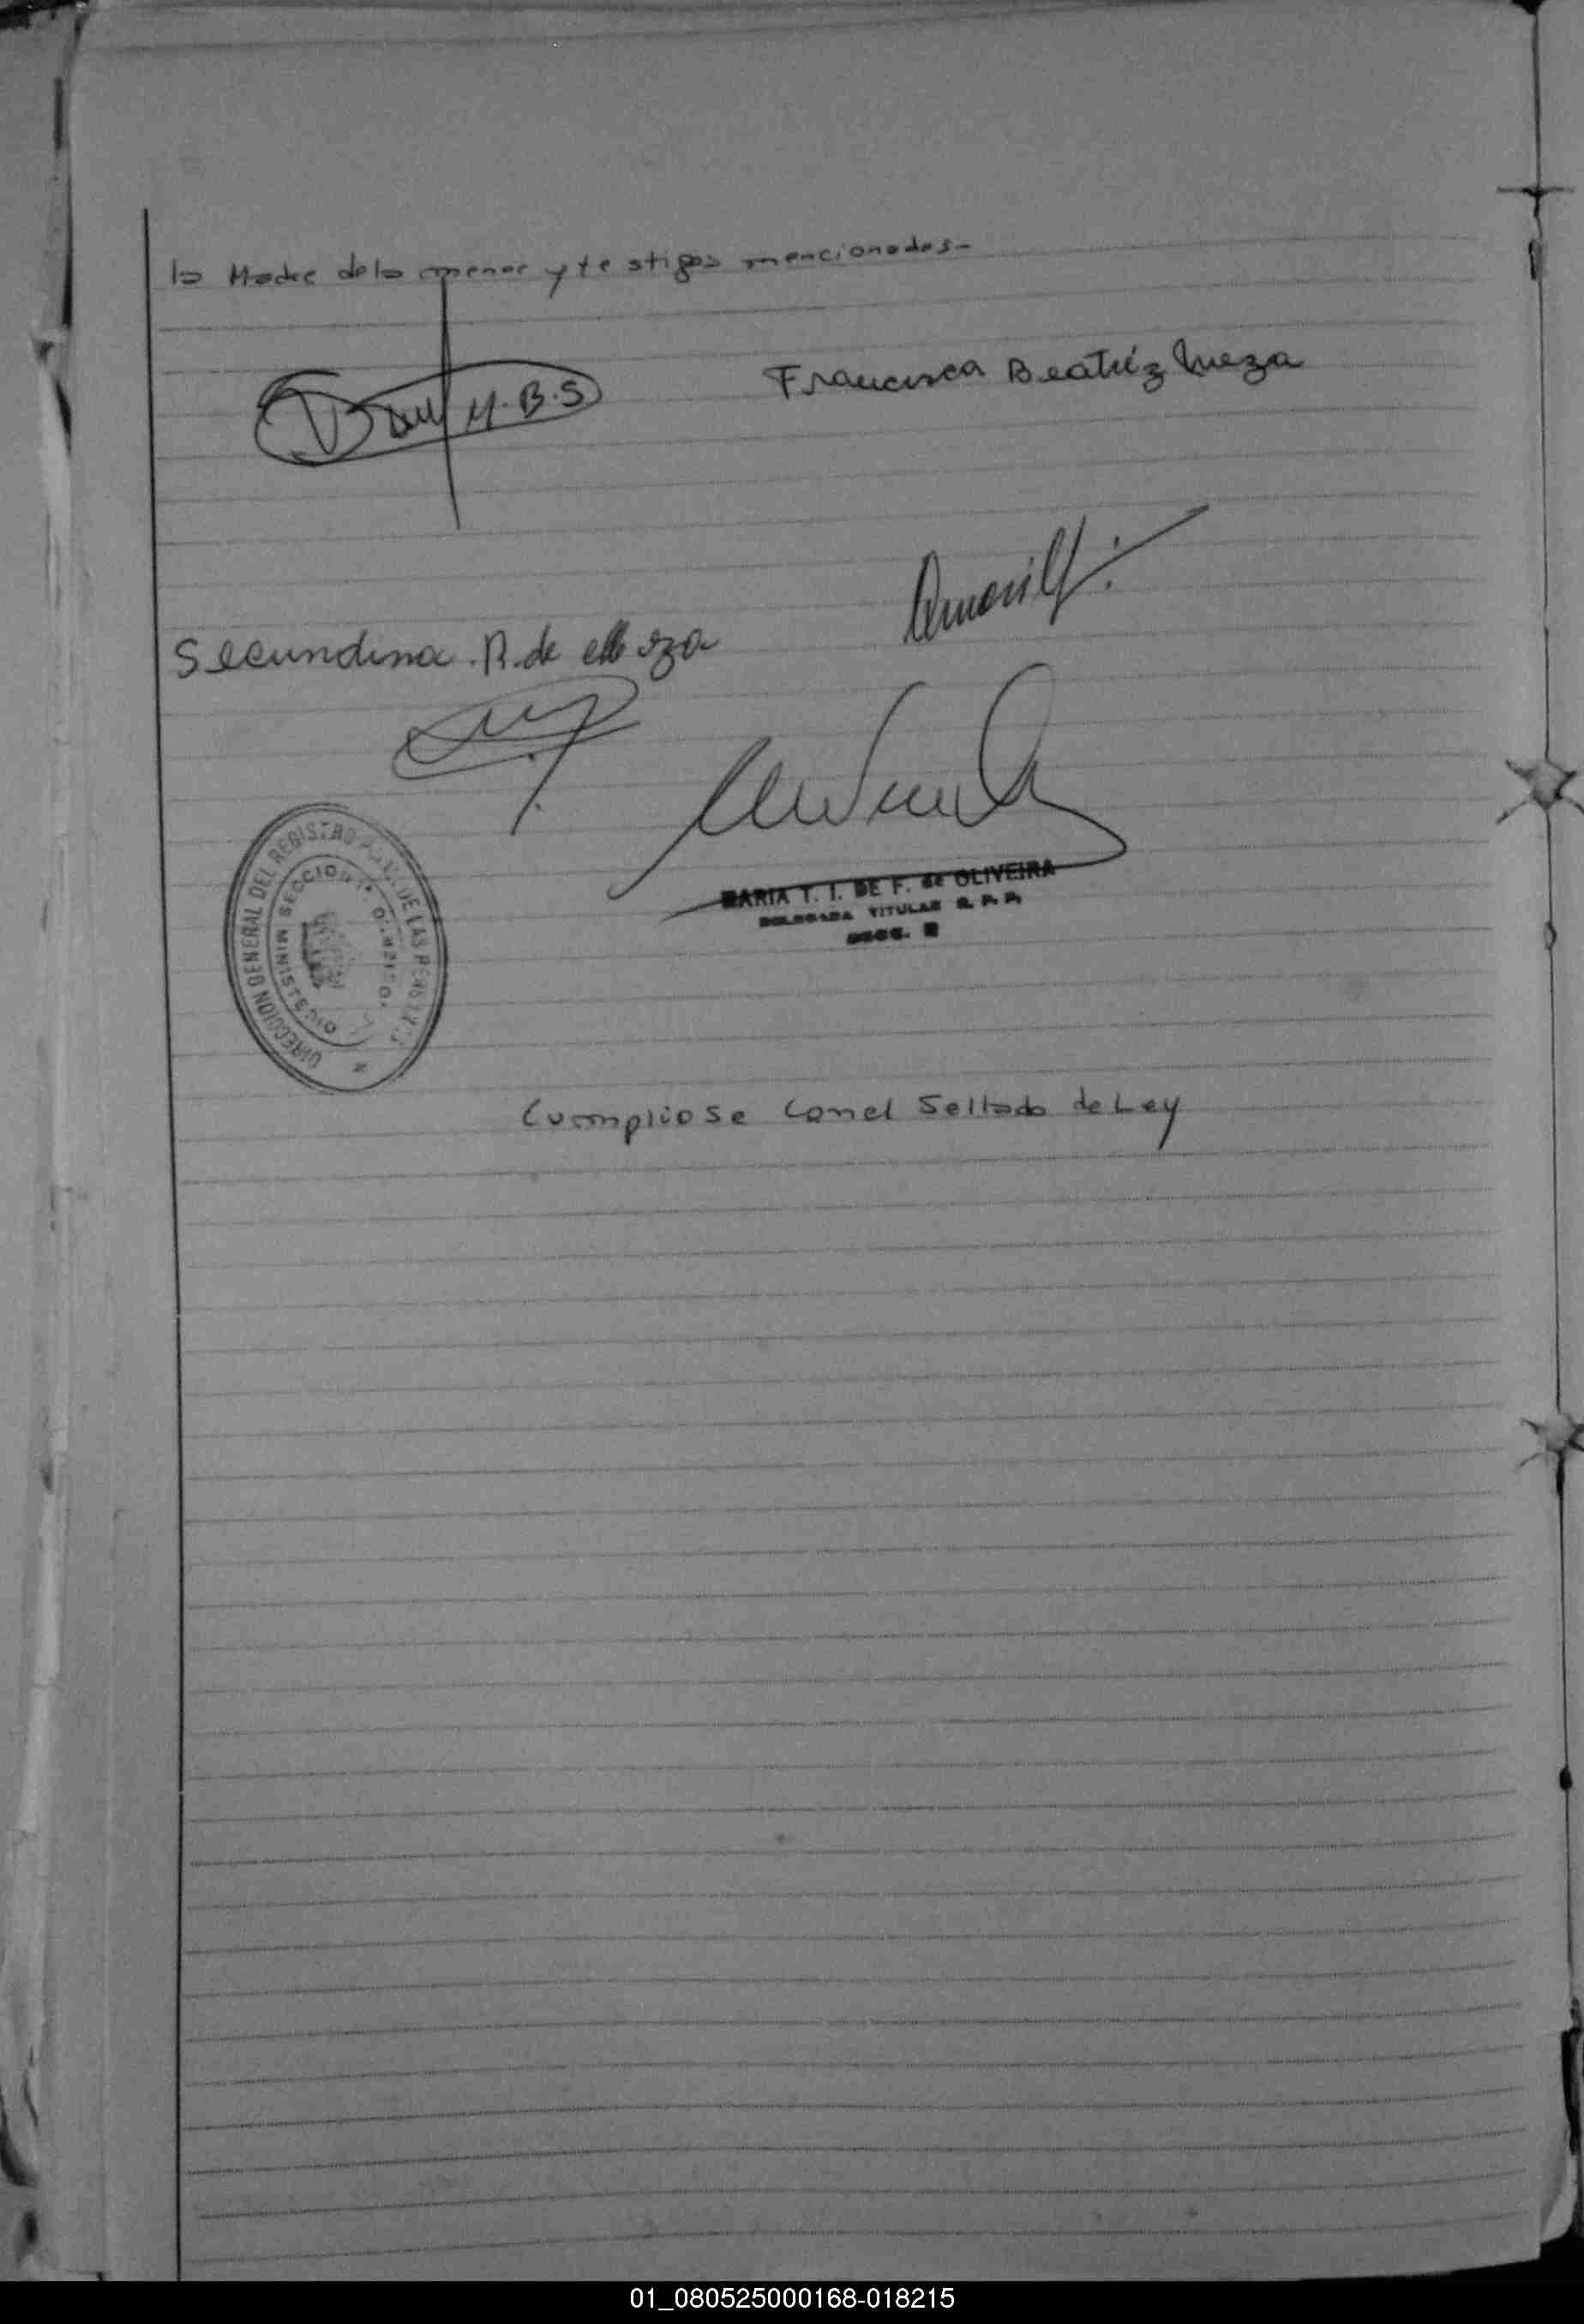 la Madre de la menor y testigos mencionados-
M.B.S
Francisca Beatríz Meza
Secundina R. de Meza
MARIA T. I. DE F. de OLIVEIRA
DELEGADA TITULAR R. P. P.
SECC.
DIRECCION GENERAL DEL REGISTRO DE LAS PERS
MINISTERIO
SECCION
Cumpliose con el Sellado de Ley
01_080525000168-018215